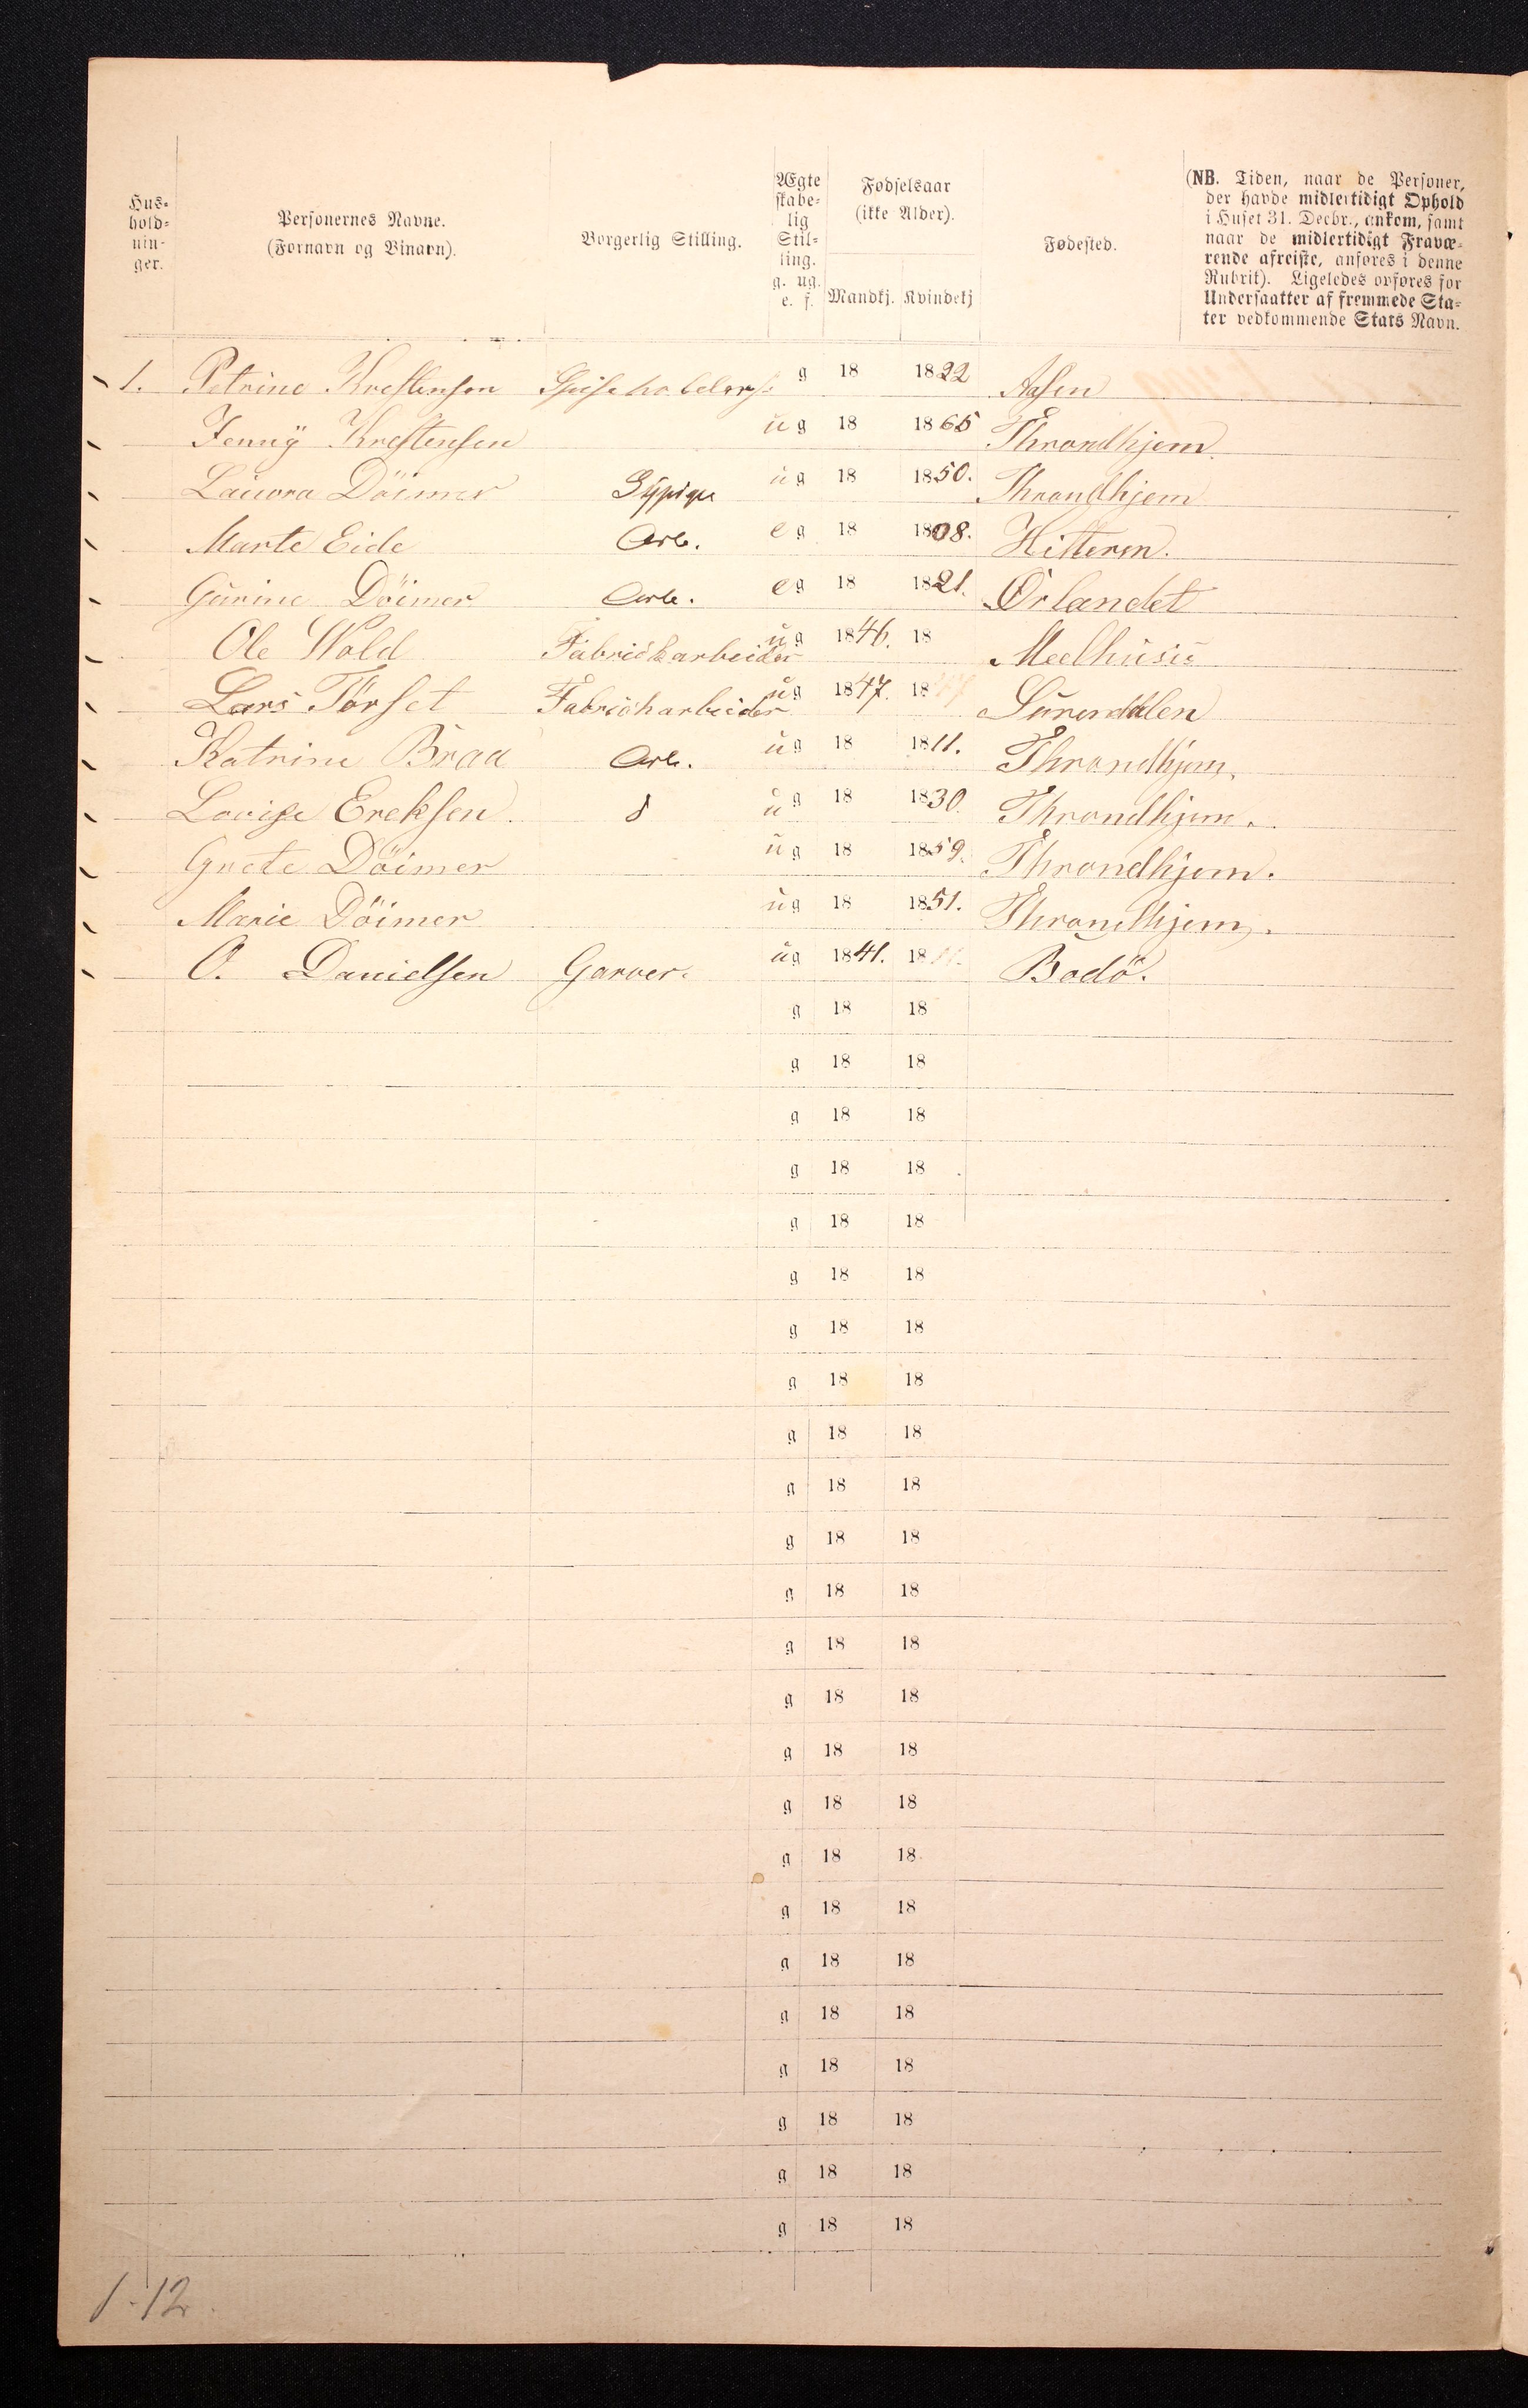 Hus-
hold-
nin-
ger.
Personernes Navne.
(Fornavn og Binavn).
Borgerlig Stilling.
Ægte
skabe-
lig
Stil-
ling.
g. ug.
e. f.
Fødselsaar
(ikke Alder).
Mandkj. Kvindekj
Fødested.
(NB. Tiden, naar de Personer,
der havde midlertidigt Ophold
i Huset 31. Decbr., ankom, samt
naar de midlertidigt Fravæ-
rende afreiste, anføres i denne
Rubrik). Ligeledes opføres for
Undersaatter af fremmede Sta-
ter vedkommende Stats Navn.
1. Petrine Krestensen g 18 1822 Aasen
Jenny Krestensen ug 18 1865 Throndhjem
Laura Döimer Sypige ug 18 1850. Throndhjem
Marte Eide Arb. eg 18 1808. Hitteren.
Gurine Döimer Arb. eg 18 1821. Örlandet
Ole Wold Fabrickarbeider ug 1846. 18 Meelhus
Lars Törset Fabrickarbeider ug 1847. 18 Surendalen
Katrine Braa Arb. ug 18 1811. Throndhjem.
Lovise Ereksen. ug 18 1830. Throndhjem.
Grete Döimer ug 18 1859. Throndhjem.
Marie Döimer ug 18 1851. Throndhjem.
O. Danielsen Garver. ug 1841. 18 Bodö.
g 18 18
g 18 18
g 18 18
g 18 18
g 18 18
g 18 18
g 18 18
g 18 18
g 18 18
g 18 18
g 18 18
g 18 18
g 18 18
g 18 18
g 18 18
g 18 18
g 18 18
g 18 18
g 18 18
g 18 18
g 18 18
g 18 18
g 18 18
g 18 18
1-12.